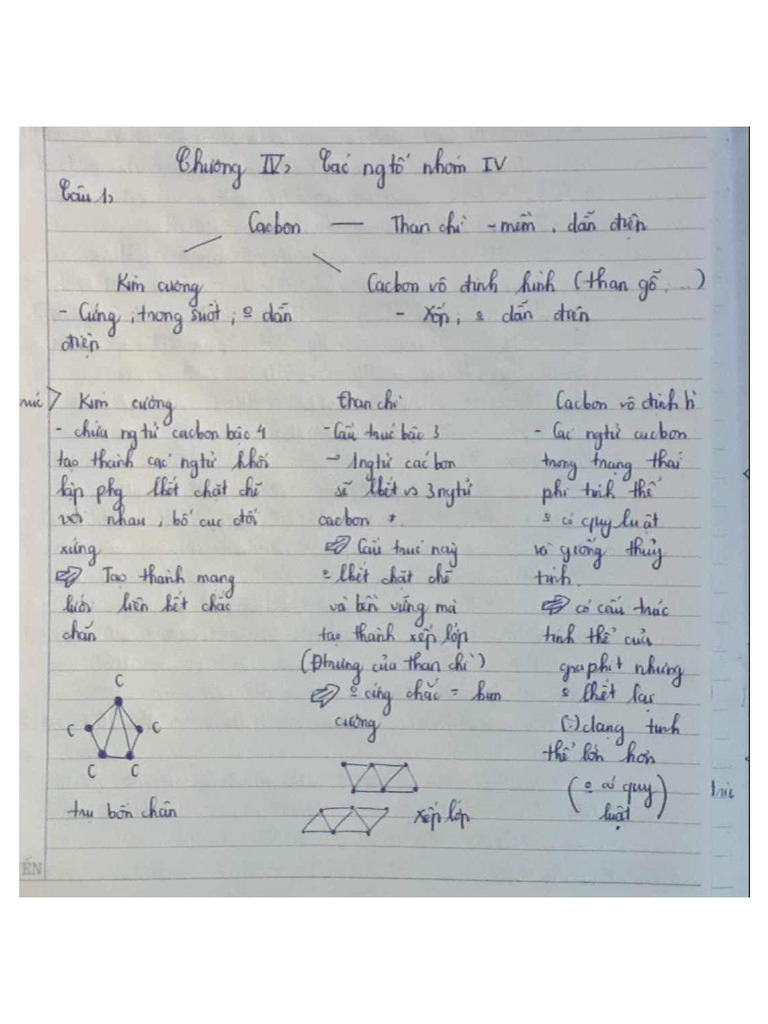 Chương IV, Các ngtố nhóm IV
Câu 1,
Cacbon — Than chì - mềm, dẫn điện
Kim cương
Cacbon vô định hình (than gỗ...)
- Cứng, trong suốt, º dẫn
điện
- Xốp, º dẫn điện
Kim cương
- chứa ngtử cacbon bậc 4
tạo thành các ngtử khối
lập phg lkết chặt chẽ
với nhau, bố cục đối
xứng
⇒ Tạo thành mạng
lưới liên kết chắc
chắn
C
C
C
C
C
trụ bốn chân
than chì
- Cấu trúc bậc 3
→ 1ngtử cácbon
sẽ lkết vs 3ngtử
cacbon
⇒ Cấu trúc này
º lkết chặt chẽ
và bền vững mà
tạo thành xếp lớp
(Đtrưng của than chì)
⇒ º cứng chắc = kim
cương
xếp lớp
Cacbon vô định h
- Các ngtử cacbon
trong trạng thái
phi tinh thể
º có quy luật
và giống thủy
tinh.
⇒ có cấu trúc
tinh thể của
graphit nhưng
º lkết lại
(:) dạng tinh
thể lớn hơn
(º có quy
luật)
ẾN